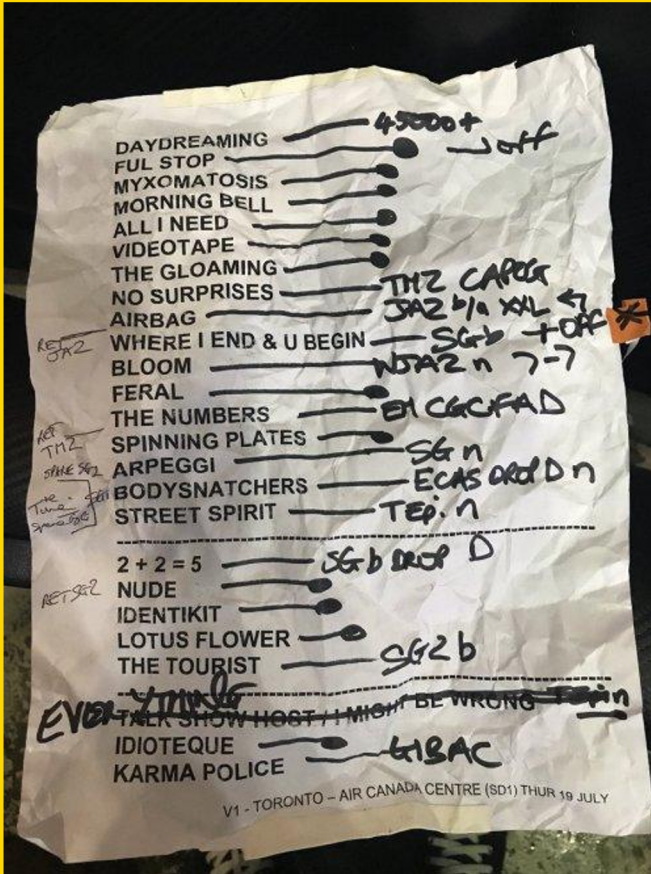 DAYDREAMING 45000+
FUL STOP off
MYXOMATOSIS
MORNING BELL
ALL I NEED
VIDEOTAPE
THE GLOAMING
NO SURPRISES TM2 CAPOG
AIRBAG JA2 b/a XXL
RET JA2
WHERE I END & U BEGIN SGb + OFF
BLOOM WJA2 n 7-7
FERAL
THE NUMBERS EM CGCFAD
RET TM2
SPINNING PLATES
SPARE SG2
ARPEGGI SG n
BODYSNATCHERS ECAS DROP D n
STREET SPIRIT TEP. n
2 + 2 = 5 SG b DROP D
RET SG2
NUDE
IDENTIKIT
LOTUS FLOWER
THE TOURIST SG2 b
EVERYTHING
TALK SHOW HOST / I MIGHT BE WRONG
IDIOTEQUE
KARMA POLICE GIBAC
V1 - TORONTO – AIR CANADA CENTRE (SD1) THUR 19 JULY